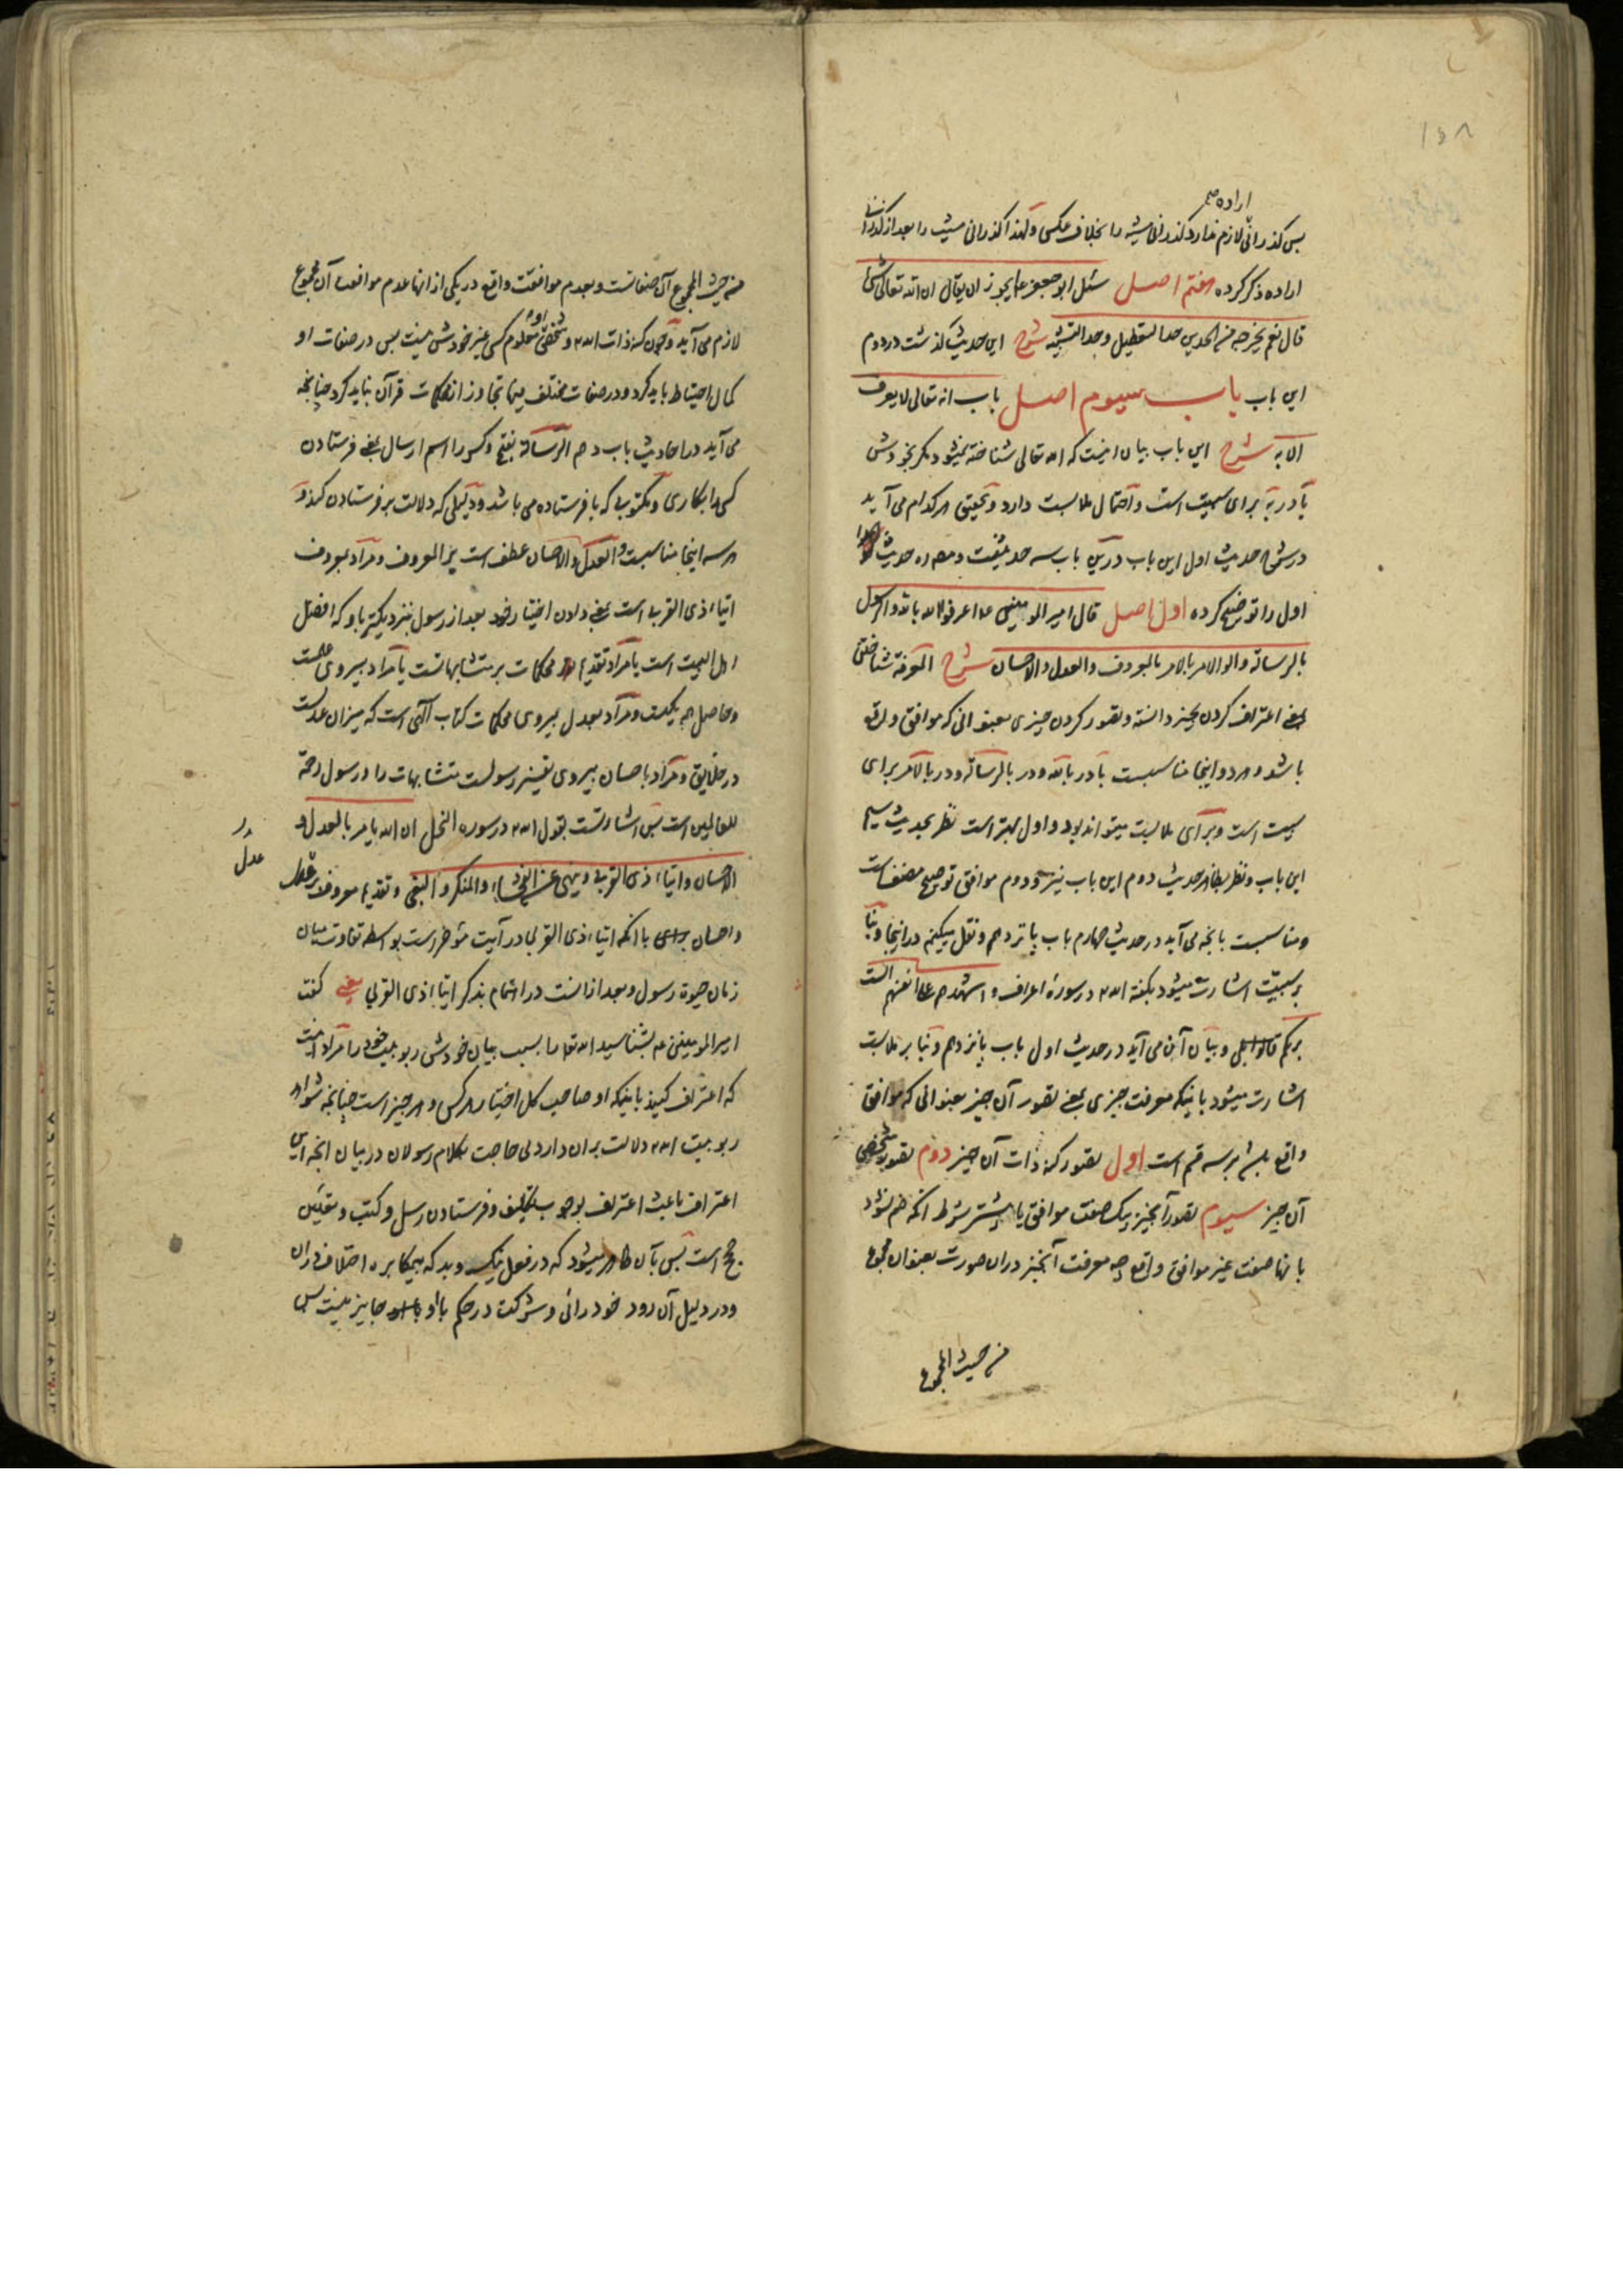 ۱۵۸
اراده
پس گذرانی لازم ندارد گذرانی مشیت را بخلاف عکس و لهذا گذرانی مشیت را بعد از گذرانی
اراده ذکر کرده هفتم اصل سئل ابو جعفر ع ایجوز ان یقال ان الله تعالی شیء
قال نعم یخرجه من الحدین حد التعطیل و حد التشبیه شرح این حدیث گذشت در دوم
این باب باب سیوم اصل باب انه تعالی لا یعرف
الا به شرح این باب بیان اینست که الله تعالی شناخته نمیشود مگر بخودش
با در به برای سببیت است و احتمال ملابست دارد و تحقیق هر کدام می آید
در شرح حدیث اول این باب درین باب سه حدیثست و مصنف حدیث
اول را توضیح کرده اول اصل قال امیر المومنین ع اعرفوا الله بالله و الرسول
بالرسالة و اولی الامر بالامر بالمعروف و العدل و الاحسان شرح المعرفة شناختن
بمعنی اعتراف کردن بچیز دانسته و تصور کردن چیزی بعنوانی که موافق واقع
باشد و هر دو اینجا مناسبست با در بالله و در بالرسالة و در بالامر برای
سببیت است و برای ملابست میتواند بود و اول بهتر است نظر بحدیث سیم
این باب و نظر بظاهر حدیث دوم این باب نیز و دوم موافق توضیح مصنف است
و مناسبست بانچه می آید در حدیث چهارم باب پانزدهم و نقل میکنیم در اینجا و بنا
بر سببیت اشارت میشود بگفته الله در سورۀ اعراف و اشهدهم علی انفسهم الست
بربکم قالوا بلی و بیان آن می آید در حدیث اول باب پانزدهم و بنا بر ملابست
اشارت میشود باینکه معرفت چیزی بمعنی تصور آن چیز بعنوانی که موافق
واقع باشد بر سه قسم است اول تصور کنه ذات آن چیز دوم تصور شخص
آن چیز سیوم تصور آنچیز بیک صفت موافق یا بیشتر بشرط آنکه ضم نشود
بانها صفت غیر موافق واقع چه معرفت آنچیز دران صورت بعنوان مجموع
من حیث المجموع
من حیث المجموع آن صفاتست و بعدم موافقت واقع در یکی از انها عدم موافقت آن مجموع
لازم می آید و چون کنه ذات الله و شخص او معلوم کسی غیر خودش نیست پس در صفات او
کمال احتیاط باید کرد و در صفات مختلف فیها تجاوز از محکمات قرآن نباید کرد چنانچه
می آید در احادیث باب دهم الرسالة بفتح و کسر را اسم ارسال بمعنی فرستادن
کسی را بکاری و مکتوبی که با فرستاده می باشد و دلیلی که دلالت بر فرستادن کند و
هر سه اینجا مناسبست و العدل و الاحسان عطف است بر المعروف و مراد بمعروف
ایتاء ذی القربی است بمعنی دادن اختیار خود بعد از رسول بنزدیکتر باو که افضل
اهل البیت است یا مراد تقدیم محکمات بر متشابهاتست یا مراد پیروی علمست
و حاصل همه یکیست و مراد بعدل پیروی محکمات کتاب الهی است که میزان عدلست
در خلایق و مراد باحسان پیروی تفسیر رسولست متشابهات را و رسول رحمة
للعالمین است پس اشارتست بقول الله در سوره النحل ان الله یامر بالعدل و
الاحسان و ایتاء ذی القربی و ینهی عن الفحشاء و المنکر و البغی و تقدیم معروف بر
عدل
و احسان با انکه ایتاء ذی القربی در آیت مؤخر است بواسطه تفاوت میان
زمان حیوة رسول و بعد از انست در اهتمام بذکر ایتاء ذی القربی یعنی گفت
امیر المومنین ع بشناسید الله تعالی را بسبب بیان خودش ربوبیت خود را مراد اینست
که اعتراف کنید باینکه او صاحب کل اختیار هر کس و هر چیز است چنانچه شواهد
ربوبیت الله دلالت بران دارد بی حاجت بکلام رسولان در بیان انچه این
اعتراف باعث اعتراف بوجوب تکلیف و فرستادن رسل و کتب و تعیین
حجج است پس بآن ظاهر میشود که در فعل نیک و بد که بیمکابره اختلاف دران
و در دلیل آن رود خودرائی و شرکت در حکم با او جایز نیست پس